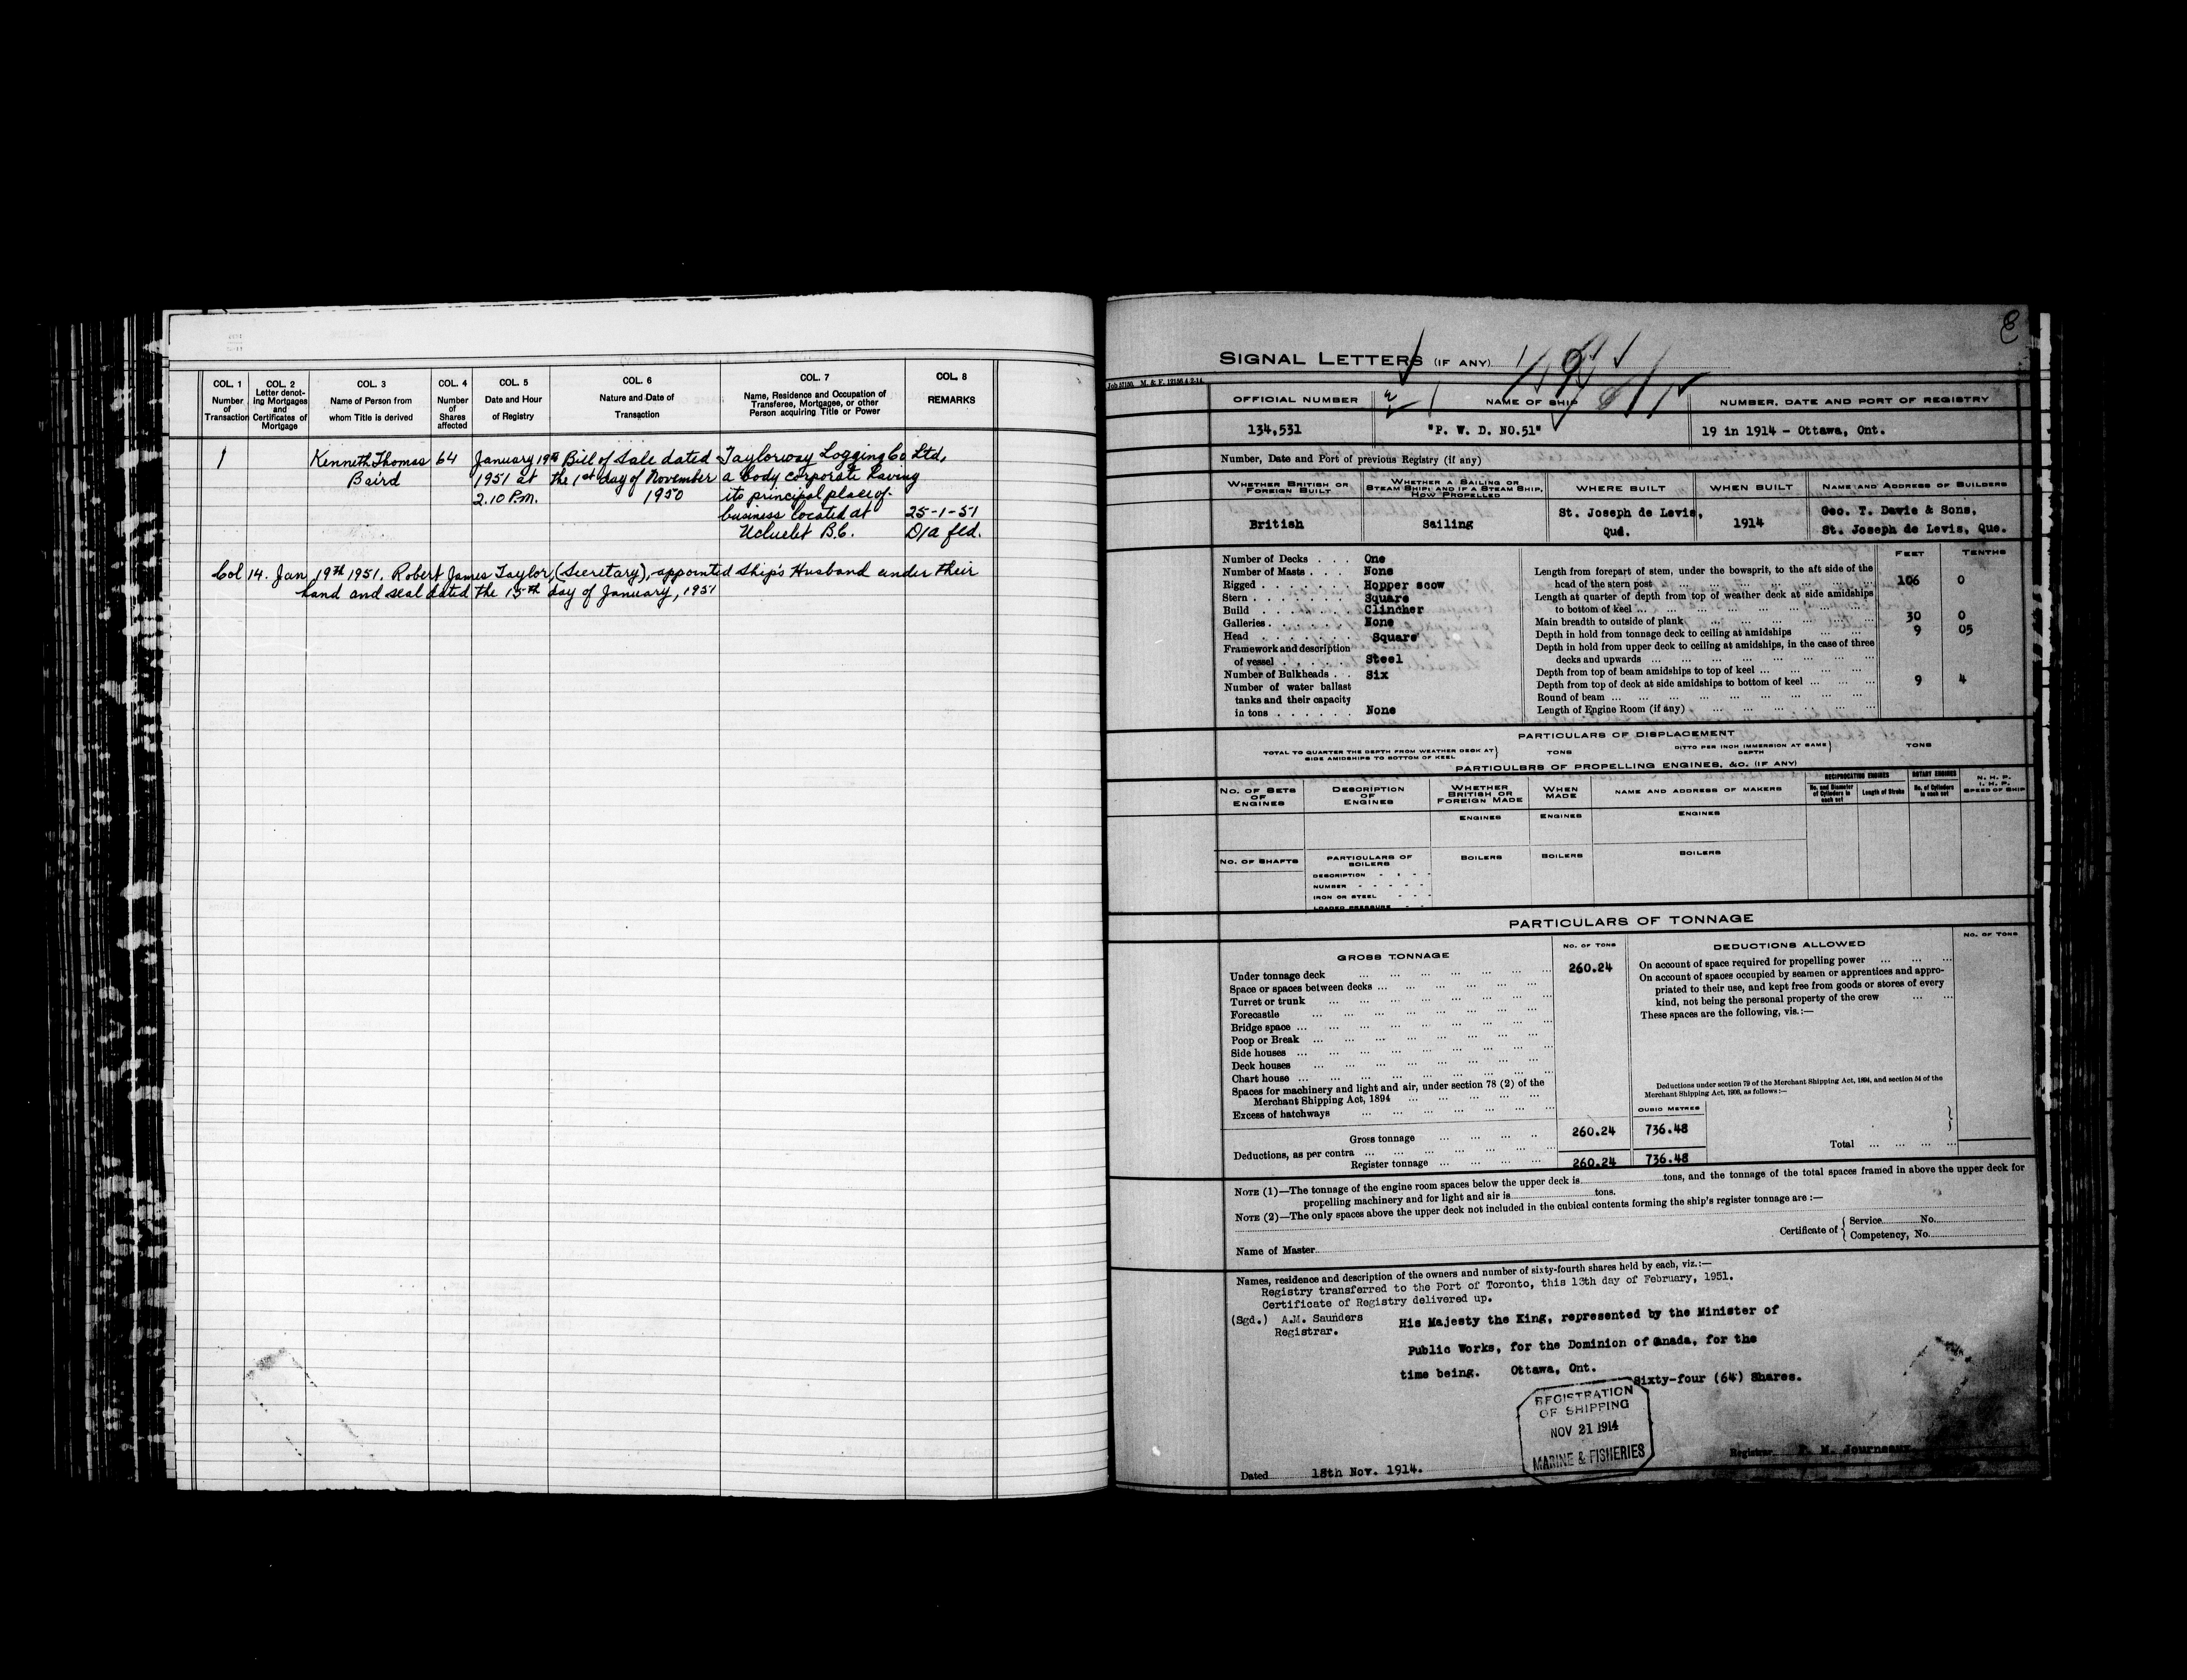 COL. 1
Number
of
Transaction
COL. 2
Letter denot-
ing Mortgages
and
Certificates of
Mortgage
COL. 3
Name of Person from
whom Title is derived
COL. 4
Number
of
Shares
affected
COL. 5
Date and Hour
of Registry
COL. 6
Nature and Date of
Transaction
COL. 7
Name, Residence and Occupation of
Transferee, Mortgagee, or other
Person acquiring Title or Power
COL. 8
REMARKS
1 Kenneth Thomas 64 January 19th Bill of Sale dated Taylorway Logging Co Ltd,
Baird 1951 at the 1st day of November a body corporate having
2.10 P.M. 1950 its principal place of
business located at 25-1-51
Ucluelet B.C. D/a fld.
Col 14. Jan 19th 1951. Robert James Taylor, (Secretary), appointed Ship's Husband under their
hand and seal dated the 15th day of January, 1951
SIGNAL LETTERS (IF ANY)
Job 57180. M. & F. 12156 4-2-14
OFFICIAL NUMBER NAME OF SHIP NUMBER, DATE AND PORT OF REGISTRY
134,531 "P. W. D. NO.51" 19 in 1914 - Ottawa, Ont.
Number, Date and Port of previous Registry (if any)
WHETHER BRITISH OR
FOREIGN BUILT
WHETHER A SAILING OR
STEAM SHIP; AND IF A STEAM SHIP,
HOW PROPELLED
WHERE BUILT
WHEN BUILT
NAME AND ADDRESS OF BUILDERS
British
Sailing
St. Joseph de Levis,
Qud.
1914
Geo. T. Davie & Sons,
St. Joseph de Levis, Que.
Number of Decks . . . One
Number of Masts . . . None
Rigged . . . . . . Hopper scow
Stern . . . . . . . Square
Build . . . . . . . Clincher
Galleries . . . . . . None
Head . . . . . . . Square
Framework and description
of vessel . . . . . Steel
Number of Bulkheads . . Six
Number of water ballast
tanks and their capacity
in tons . . . . . . None
FEET TENTHS
Length from forepart of stem, under the bowsprit, to the aft side of the
head of the stern post ... 106 0
Length at quarter of depth from top of weather deck at side amidships
to bottom of keel ...
Main breadth to outside of plank ... 30 0
Depth in hold from tonnage deck to ceiling at amidships ... 9 05
Depth in hold from upper deck to ceiling at amidships, in the case of three
decks and upwards ...
Depth from top of beam amidships to top of keel ...
Depth from top of deck at side amidships to bottom of keel ... 9 4
Round of beam ...
Length of Engine Room (if any) ...
PARTICULARS OF DISPLACEMENT
TOTAL TO QUARTER THE DEPTH FROM WEATHER DECK AT
SIDE AMIDSHIPS TO BOTTOM OF KEEL } TONS
DITTO PER INCH IMMERSION AT SAME
DEPTH } TONS
PARTICULBRS OF PROPELLING ENGINES, &C. (IF ANY)
NO. OF SETS
OF
ENGINES
DESCRIPTION
OF
ENGINES
WHETHER
BRITISH OR
FOREIGN MADE
WHEN
MADE
NAME AND ADDRESS OF MAKERS
RECIPROCATING ENGINES
No. and Diameter
of Cylinders in
each set
Length of Stroke
ROTARY ENGINES
No. of Cylinders
in each set
N. H. P.
I. H. P.
SPEED OF SHIP
ENGINES ENGINES ENGINES
NO. OF SHAFTS
PARTICULARS OF
BOILERS
BOILERS BOILERS BOILERS
DESCRIPTION
NUMBER
IRON OR STEEL
LOADED PRESSURE
PARTICULARS OF TONNAGE
GROSS TONNAGE NO. OF TONS
Under tonnage deck ... 260.24
Space or spaces between decks ...
Turret or trunk ...
Forecastle ...
Bridge space ...
Poop or Break ...
Side houses ...
Deck houses ...
Chart house ...
Spaces for machinery and light and air, under section 78 (2) of the
Merchant Shipping Act, 1894 ...
Excess of hatchways ...
Gross tonnage ... 260.24 736.48
Deductions, as per contra ...
Register tonnage ... 260.24 736.48
CUBIC METRES
DEDUCTIONS ALLOWED NO. OF TONS
On account of space required for propelling power ...
On account of spaces occupied by seamen or apprentices and appro-
priated to their use, and kept free from goods or stores of every
kind, not being the personal property of the crew ...
These spaces are the following, vis.:—
Deductions under section 79 of the Merchant Shipping Act, 1894, and section 54 of the
Merchant Shipping Act, 1906, as follows:—
Total ...
NOTE (1)—The tonnage of the engine room spaces below the upper deck is tons, and the tonnage of the total spaces framed in above the upper deck for
propelling machinery and for light and air is tons.
NOTE (2)—The only spaces above the upper deck not included in the cubical contents forming the ship's register tonnage are :—
Name of Master
Certificate of { Service No.
Competency, No.
Names, residence and description of the owners and number of sixty-fourth shares held by each, viz.:—
Registry transferred to the Port of Toronto, this 13th day of February, 1951.
Certificate of Registry delivered up.
(Sgd.) A.M. Saunders
Registrar.
His Majesty the King, represented by the Minister of
Public Works, for the Dominion of Canada, for the
time being. Ottawa, Ont.
Sixty-four (64) Shares.
REGISTRATION
OF SHIPPING
NOV 21 1914
MARINE & FISHERIES
Dated 18th Nov. 1914.
Registrar F. M. Journeaux